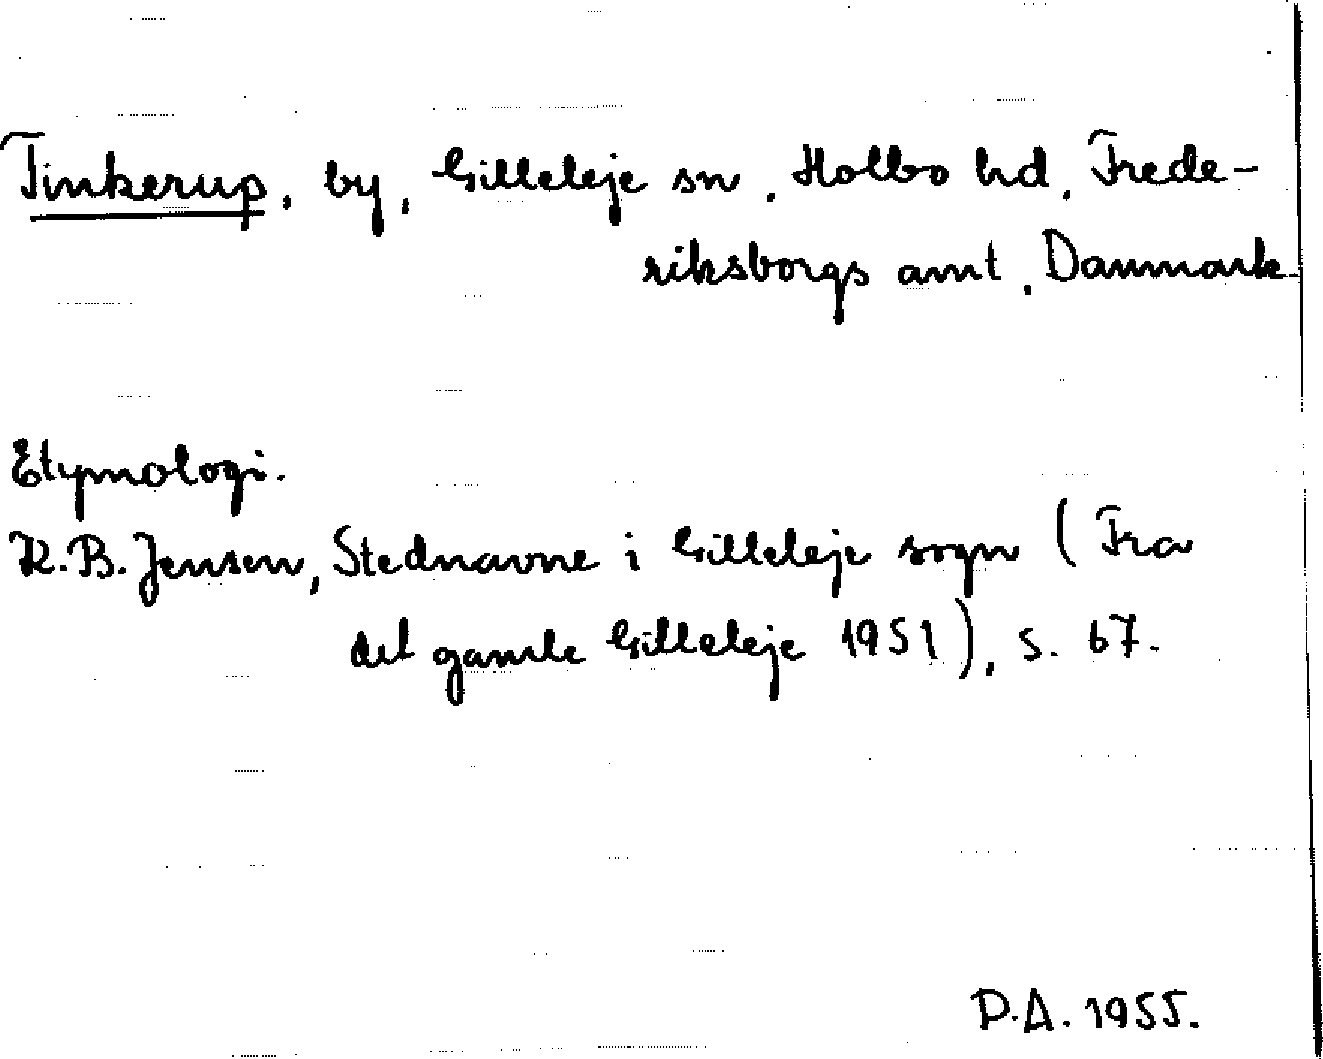 Tinkerup, by, Gilleleje sn, Holbo hd, Frede-
riksborgs amt, Danmark.
Etymologi.
K.B. Jensen, Stednavne i Gilleleje sogn (Fra
det gamle Gilleleje 1951), s. 67.
P.A. 1955.